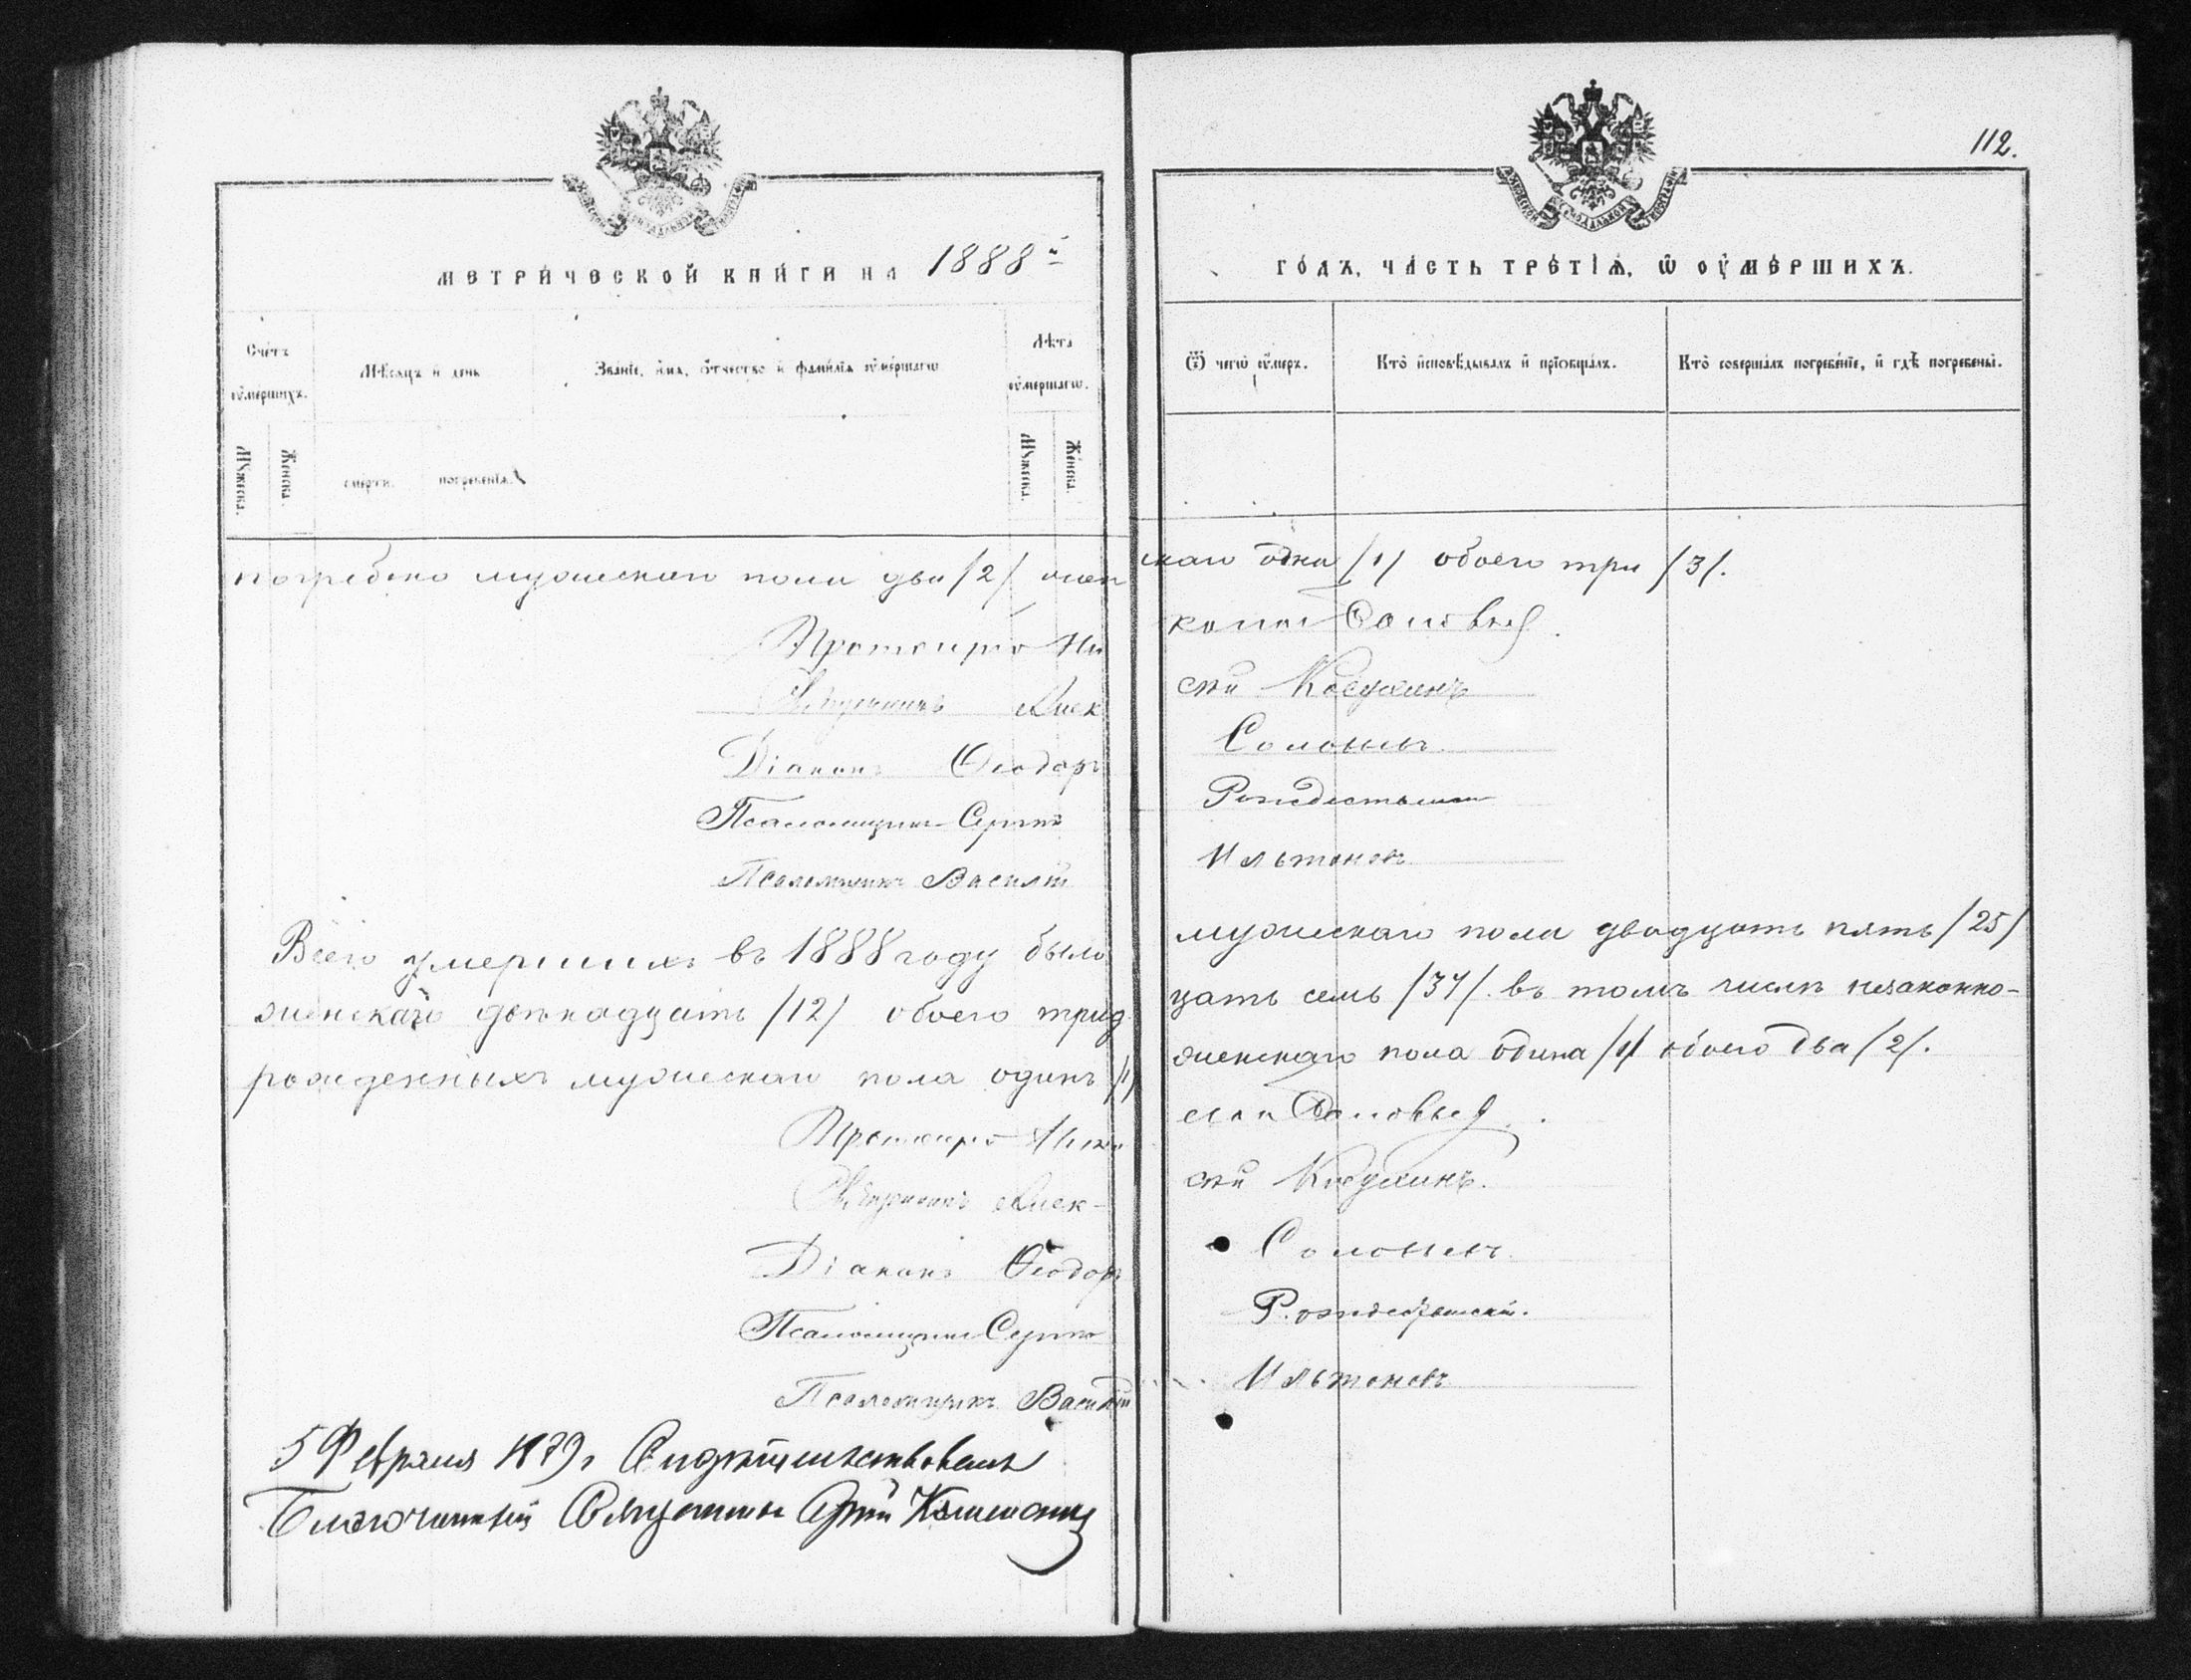 112.
МЕТРИЧЕСКОЙ КНИГИ НА 1888й ГОДЪ, ЧАСТЬ ТРЕТІЯ, Ѡ ОУМЕРШИХЪ.
Счетъ оумершихъ.
Мѣсяцъ и день
Званіе, имя, отчество и фамилія оумершагѡ
Лѣта оумершагѡ.
Ѿ чегѡ оумеръ.
Кто исповѣдывалъ и пріобщалъ.
Кто совершалъ погребеніе, и гдѣ погребены.
Мужеска.
Женска.
смерти.
погребенія.
Мужеска.
Женска.
погребено мужескаго пола два /2/ женскаго одна /1/ обоего три /3/.
Протоіерей Николай Соловьев
Священникъ Алексѣй Косухинъ
Діаконъ Ѳеодоръ
Псаломщикъ Сергѣй Рождественскій
Псаломщикъ Василій Ильтоновъ
Всего умершихъ въ 1888 году было мужескаго пола двадцать пять /25/
женскаго двѣнадцать /12/ обоего тридцать семь /37/. въ томъ числѣ незаконно-
рожденныхъ мужескаго пола одинъ /1/ женскаго пола одна /1/ обоего два /2/.
Протоіерей Николай Соловьев
Священникъ Алексѣй Косухинъ.
Діаконъ Ѳеодоръ
Псаломщикъ Сергѣй Рождественскій.
Псаломщикъ Василій Ильтоновъ
5 Февраля Свидѣтельствовалъ
Благочинный Священникъ